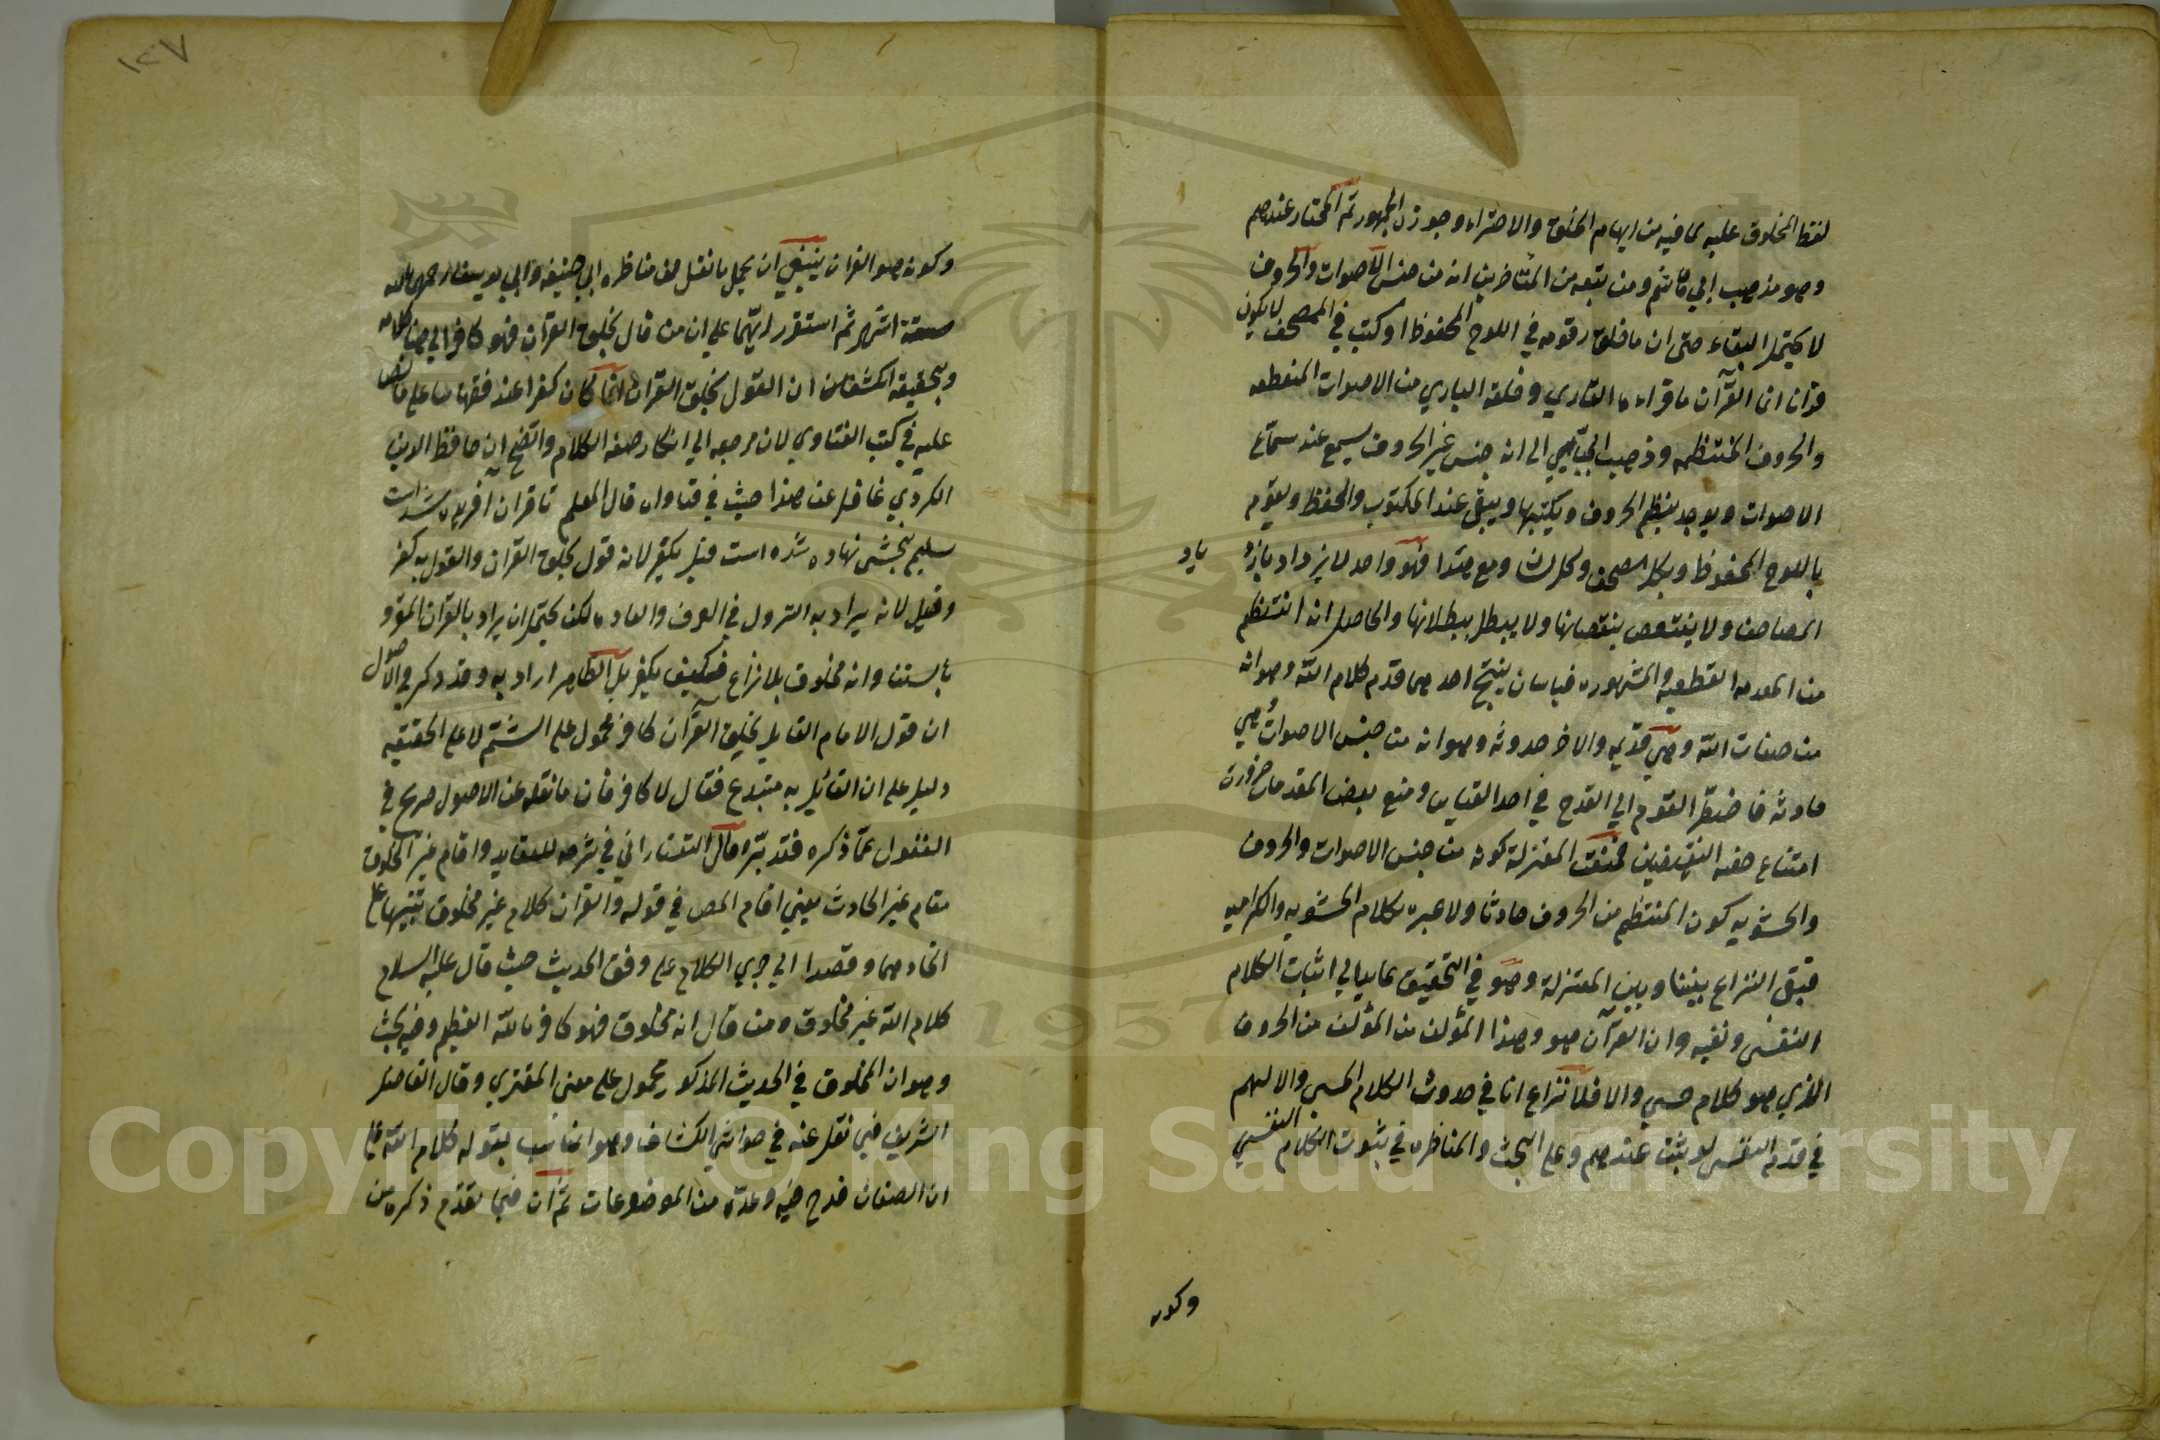 لفظ المخلوق عليه لما فيه من ايهام الخلق والافتراء وجوزه الجمهور ثم المختار عندهم
وهو مذهب ابي هاشم ومن تبعه من المتأخرين انه من جنس الاصوات والحروف
لا يحتمل البقاء حتى ان ما خلق رقومه في اللوح المحفوظ او كتب في المصحف لا يكون
قرانا ان القرآن ما قراءه القاري وخلقه الباري من الاصوات المنقطعه
والحروف المنتظمه وذهب الجبائي الى انه جنس غير الحروف يسمع عند سماع
الاصوات ويوجد بنظم الحروف وبكتبها ويبقى عند المكتوب والحفظ ويقوم
باللوح المحفوظ وبكل مصحف وكل لسان ومع هذا فهو واحد لا يزداد بازد
ياد
المصاحف ولا ينتقص بنقصانها ولا يبطل ببطلانها والحاصل انه انتظم
من المقدمه القطعيه والمشهوره قياسان ينتج احدهما قدم كلام الله وهو انه
من صفات الله وهي قديمه والاخر حدوثه وهو انه من جنس الاصوات وهي
حادثه فاضطر القوم الى القدح في احد القياس ومنع بعض المقدمات ضرورة
امتناع حقيه النقيضين فمنعت المعتزلة كونه من جنس الاصوات والحروف
والحشويه كون المنتظم من الحروف حادثا ولا عبره بكلام الحشويه والكراميه
فبقى النزاع بيننا وبين المعتزلة وهو في التحقيق عايد الى اثبات الكلام
النفسى ونفيه وان القرآن هو وهذا المؤلف من المؤلف من الحروف
الذي هو كلام حسي والا فلا نزاع لنا في حدوث الكلام الحسي ولا لهم
في قدم النفسى لو ثبت عندهم وعلى البحث والمناظره في ثبوت الكلام النفسي
وكونه
١٤٧
وكونه هو القران ينبغي ان يحمل ما نقل من مناظره ابي حنيفه وابي يوسف رحمهما الله
ستة اشهر ثم استقر رايهما على ان من قال بخلق القرآن فهو كافر الى هنا كلامه
وبتحقيقه انكشف ان القول بخلق القران انما كان كفرا عند فقهائنا على ما نص
عليه في كتب الفتاوي لان مرجعه الي انكار صفه الكلام واتضح ان حافظ الدين
الكردي غافل عن هذا حيث في فتاواه قال المعلم تا قران افريده شده است
سليم پنجشى نهاده شده است قيل يكفر لانه قول بخلق القرآن والقول به كفر
وقيل لانه يراد به النزول في العرف والعاده لكن يحتمل ان يراد بالقران المقرو
بالسنتنا وانه مخلوق بلا نزاع فكيف يكفر بل الظاهر اراد به وقد ذكر في الاصول
ان قول الامام القايل بخلق القرآن كافر محمول على الشتم لا على الحقيقه
دليل على ان القائل به مبتدع فقال لا كافر فان ما نقله عن الاصول صريح في
الغفول عما ذكره فتدبر قال التفتازاني في شرحه للعقايد واقام غير المخلوق
مقام غير الحادث يعني اقام المص في قوله والقرآن كلام غير مخلوق تنبيها على
اتحادهما وقصدا الي جري الكلام على وفق الحديث حيث قال عليه السلام
كلام الله غير مخلوق ومن قال انه مخلوق فهو كافر بالله العظيم وفيه بحث
وهو ان المخلوق في الحديث المذكور محمول على معنى المفتري وقال الفاضل
الشريف فيما نقل عنه في حواشي الكشاف وهو انما سب بقوله كلام الله على
ان الصغان قدح فيه وعده من الموضوعات ثم ان فيما تقدم ذكره من
Copyright © King Saud University
1957